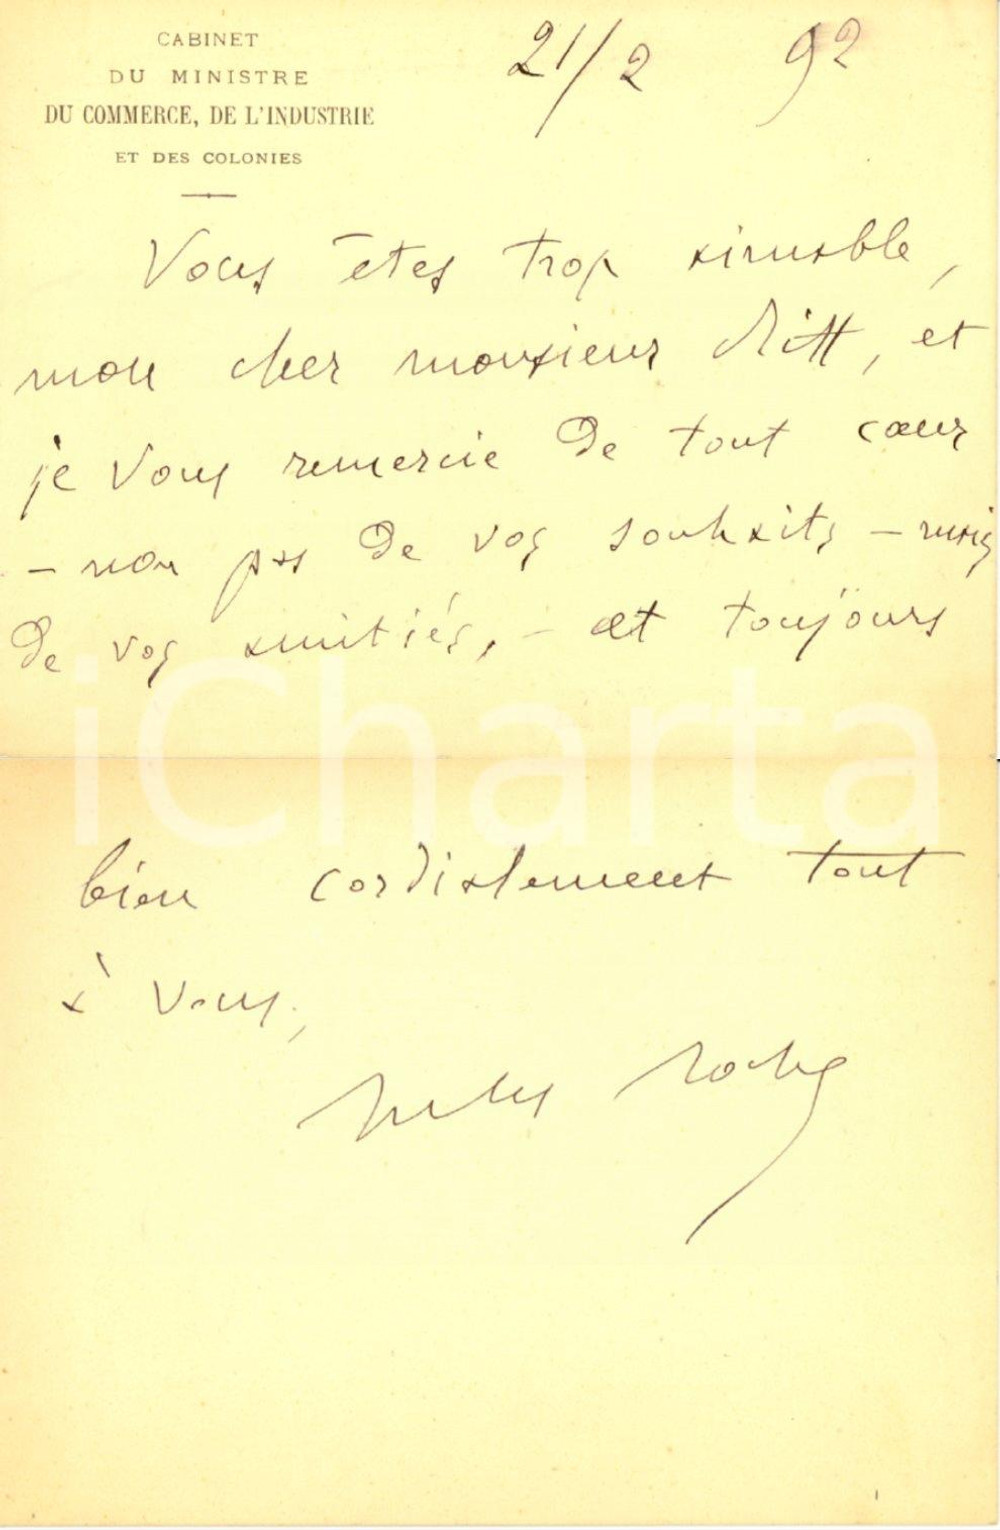 CABINET
DU MINISTRE
DU COMMERCE, DE L'INDUSTRIE
ET DES COLONIES
21/2 92
Vous êtes trop aimable,
mon cher monsieur Ritt, et
je vous remercie de tout cœur
– non pas de vos souhaits – mais
de vos amitiés, – et toujours
iCharta
bien cordialement tout
à vous,
Jules Roche